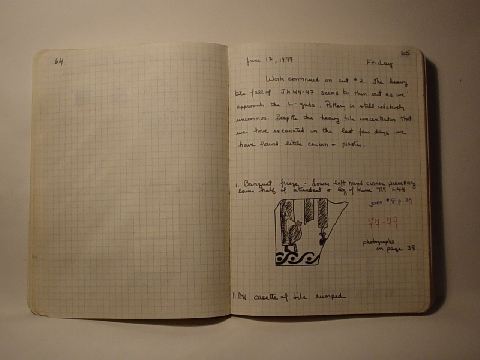 64
65
June 17, 1977 Friday
Work continued on cut #2. The heavy
tile fall of seems to thin out as we
approach the grids. Pottery is still relatively
uncommon. Despite the heavy tile concentration that
we have excavated in the last few days we
have found little ceramic or plastic.
1. Banquet frieze - Lower left hand corner preserving
lower half of attendant & leg of
join #8 p. 39
77-79
photographs
on page 38
1. One cassette of tile dumped